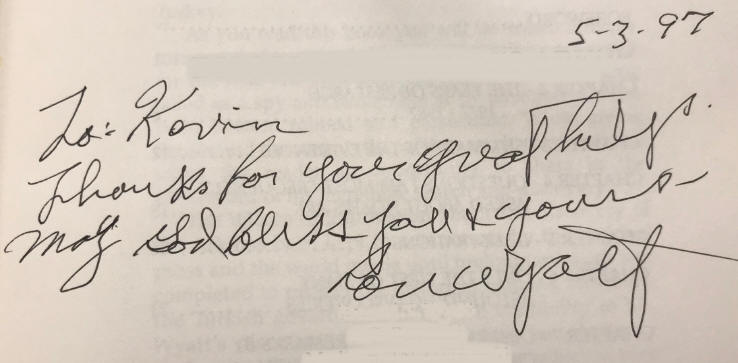 5-3.97
To: Kevin
Thanks for your great help.
May God bless you & yours-
Ron Wyatt